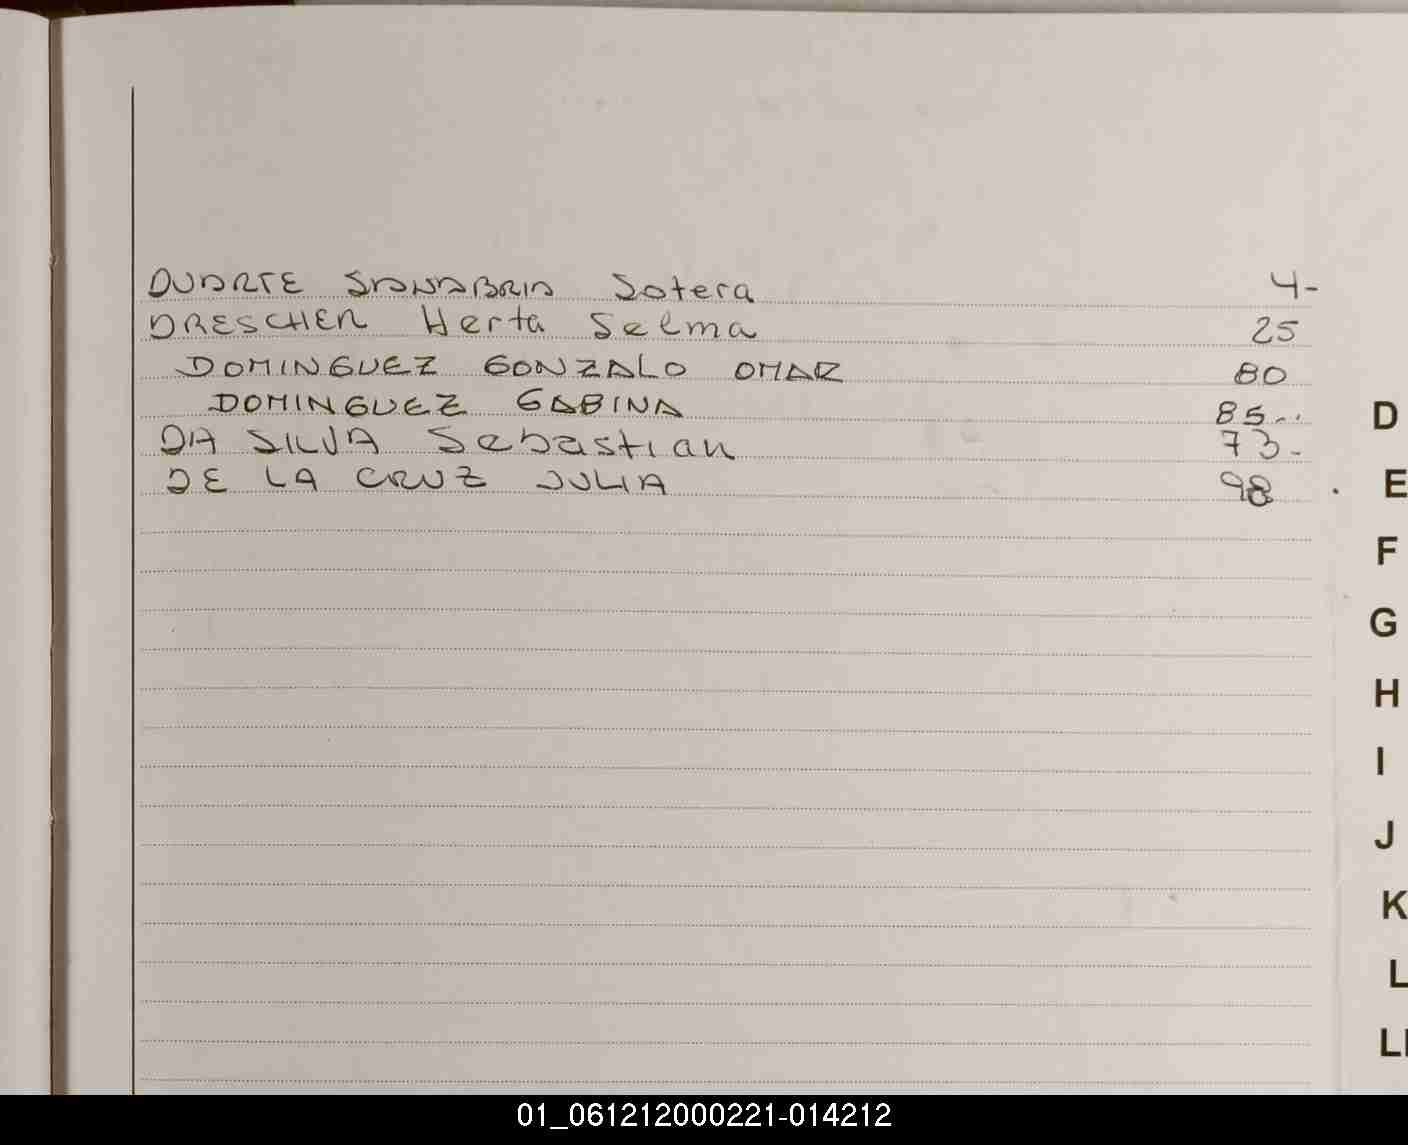 DUARTE SANABRIA Sotera 4-
DRESCHER Herta Selma 25
DOMINGUEZ GONZALO OMAR 80
DOMINGUEZ GABINA 85-..
DA SILVA Sebastian 73-
DE LA CRUZ JULIA 98
D
E
F
G
H
I
J
K
L
LL
01_061212000221-014212